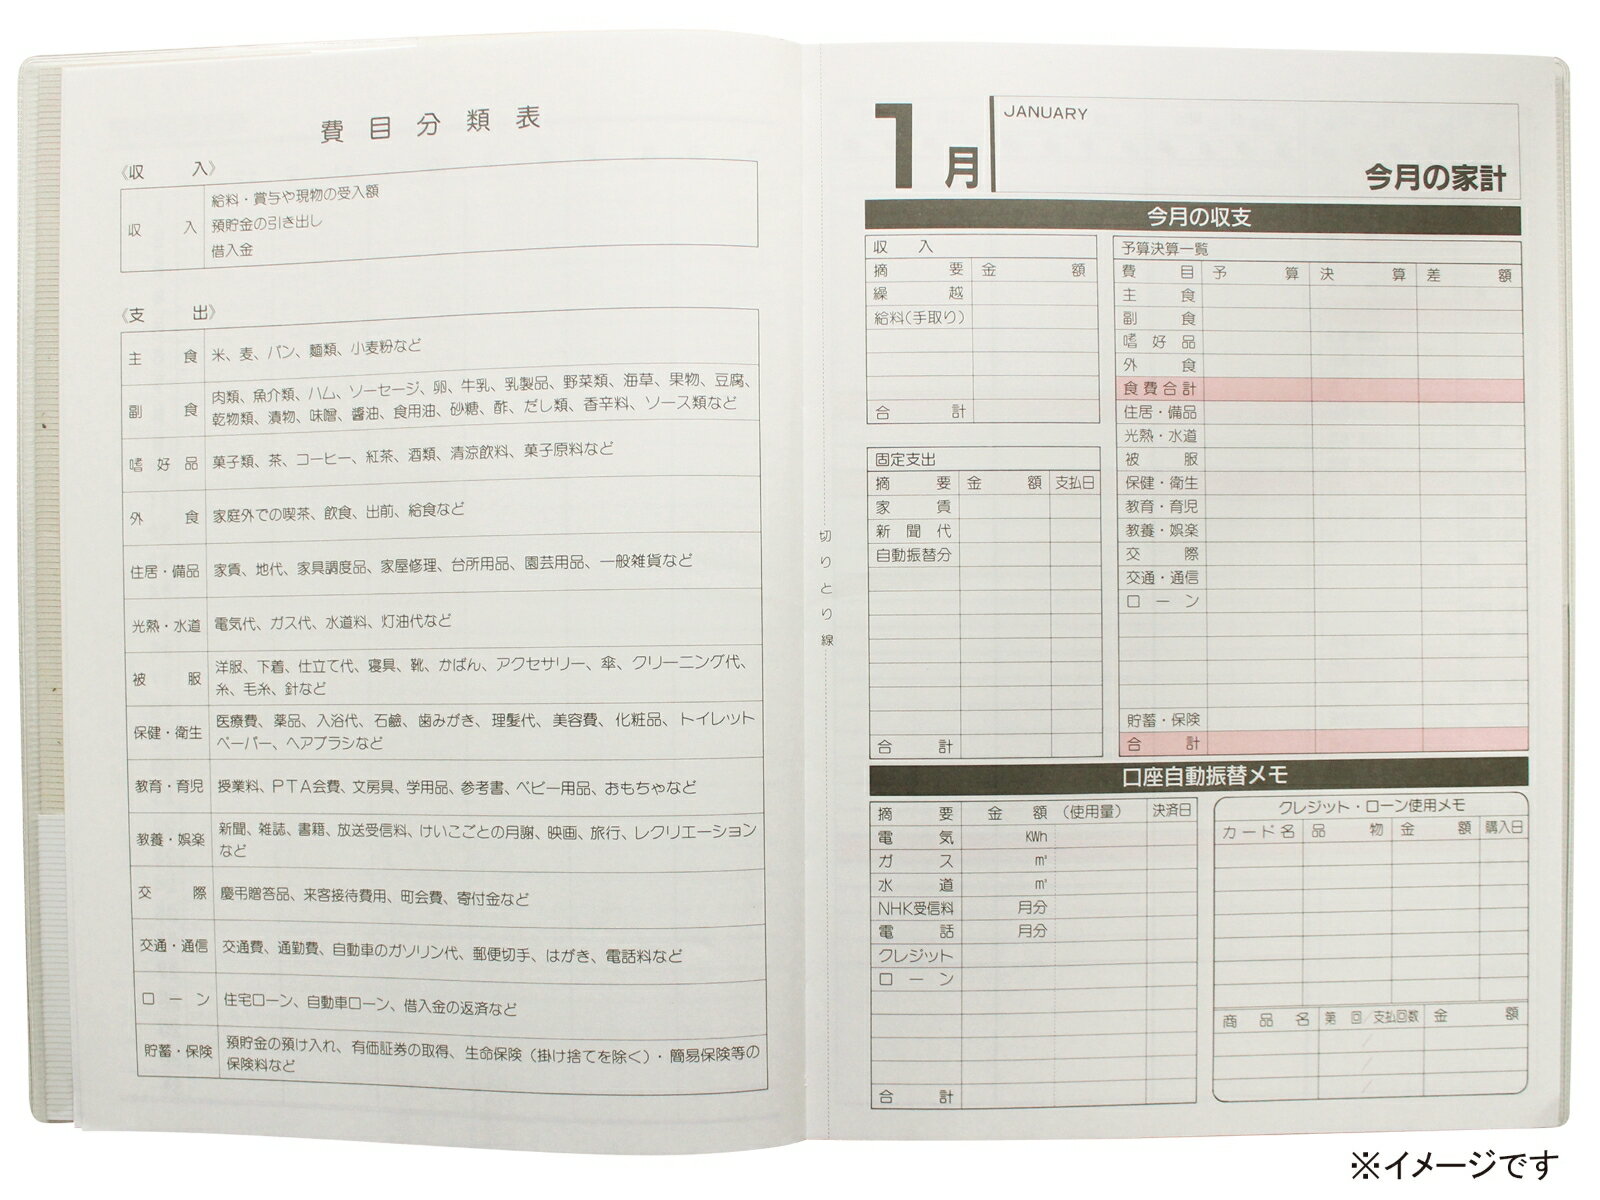 費目分類表
《収入》
収入
給料・賞与や現物の受入額
預貯金の引き出し
借入金
《支出》
主食 米、麦、パン、麺類、小麦粉など
副食 肉類、魚介類、ハム、ソーセージ、卵、牛乳、乳製品、野菜類、海草、果物、豆腐、
乾物類、漬物、味噌、醤油、食用油、砂糖、酢、だし類、香辛料、ソース類など
嗜好品 菓子類、茶、コーヒー、紅茶、酒類、清涼飲料、菓子原料など
外食 家庭外での喫茶、飲食、出前、給食など
住居・備品 家賃、地代、家具調度品、家屋修理、台所用品、園芸用品、一般雑貨など
光熱・水道 電気代、ガス代、水道料、灯油代など
被服 洋服、下着、仕立て代、寝具、靴、かばん、アクセサリー、傘、クリーニング代、
糸、毛糸、針など
保健・衛生 医療費、薬品、入浴代、石鹼、歯みがき、理髪代、美容費、化粧品、トイレット
ペーパー、ヘアブラシなど
教育・育児 授業料、PTA会費、文房具、学用品、参考書、ベビー用品、おもちゃなど
教養・娯楽 新聞、雑誌、書籍、放送受信料、けいこごとの月謝、映画、旅行、レクリエーション
など
交際 慶弔贈答品、来客接待費用、町会費、寄付金など
交通・通信 交通費、通勤費、自動車のガソリン代、郵便切手、はがき、電話料など
ローン 住宅ローン、自動車ローン、借入金の返済など
貯蓄・保険 預貯金の預け入れ、有価証券の取得、生命保険（掛け捨てを除く）・簡易保険等の
保険料など
切りとり線
1月
JANUARY
今月の家計
今月の収支
収入
摘要 金額
繰越
給料(手取り)
合計
固定支出
摘要 金額 支払日
家賃
新聞代
自動振替分
合計
予算決算一覧
費目 予算 決算 差額
主食
副食
嗜好品
外食
食費合計
住居・備品
光熱・水道
被服
保健・衛生
教育・育児
教養・娯楽
交際
交通・通信
ローン
貯蓄・保険
合計
口座自動振替メモ
摘要 金額 （使用量） 決済日
電気 KWh
ガス ㎥
水道 ㎥
NHK受信料 月分
電話 月分
クレジット
ローン
合計
クレジット・ローン使用メモ
カード名 品物 金額 購入日
商品名 第 回／支払回数 金額
／
／
／
※イメージです